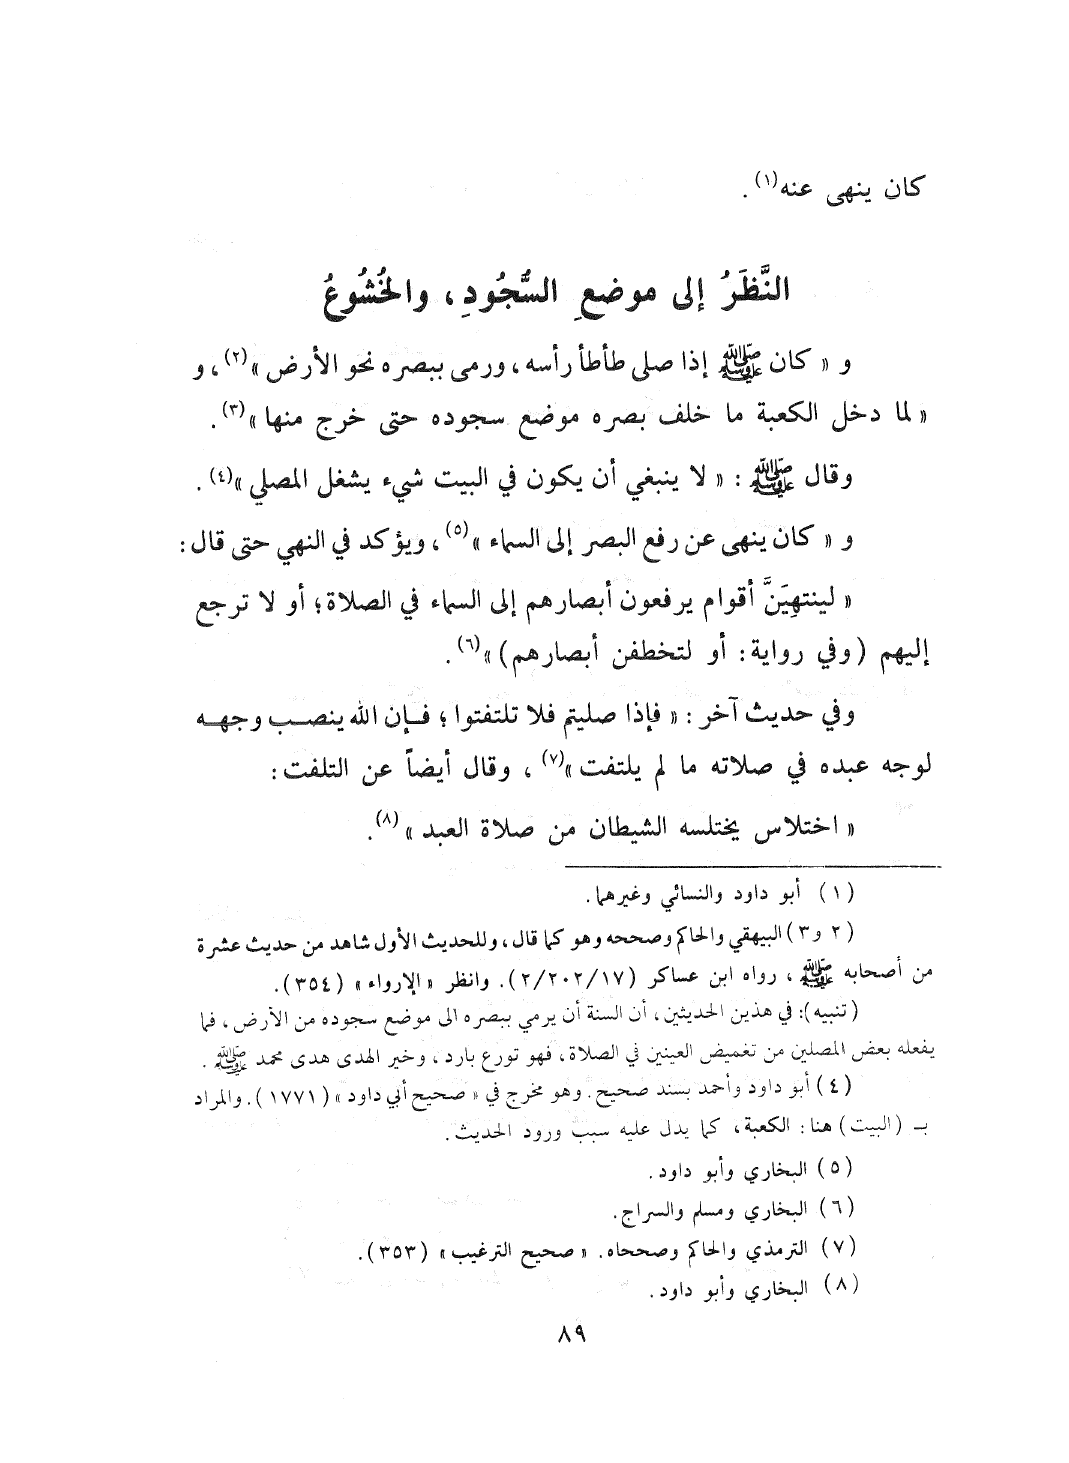 كان ينهى عنه(١).
النَّظَرُ إلى موضعِ السُّجُودِ، والخُشُوعُ
و « كان ﷺ إذا صلى طأطأ رأسه، ورمى ببصره نحو الأرض »(٢)، و
« لما دخل الكعبة ما خلف بصره موضع سجوده حتى خرج منها »(٣).
وقال ﷺ : « لا ينبغي أن يكون في البيت شيء يشغل المصلي »(٤).
و « كان ينهى عن رفع البصر إلى السماء »(٥)، ويؤكد في النهي حتى قال:
« لينتهِيَنَّ أقوام يرفعون أبصارهم إلى السماء في الصلاة؛ أو لا ترجع
إليهم (وفي رواية: أو لتخطفن أبصارهم) »(٦).
وفي حديث آخر : « فإذا صليتم فلا تلتفتوا ؛ فإن الله ينصب وجهه
لوجه عبده في صلاته ما لم يلتفت »(٧) ، وقال أيضاً عن التلفت:
« اختلاس يختلسه الشيطان من صلاة العبد »(٨).
(١) أبو داود والنسائي وغيرهما.
(٢ و٣) البيهقي والحاكم وصححه وهو كما قال، وللحديث الأول شاهد من حديث عشرة
من أصحابه ﷺ ، رواه ابن عساكر (٢/٢٠٢/١٧). وانظر « الإرواء » (٣٥٤).
(تنبيه): في هذين الحديثين، أن السنة أن يرمي ببصره الى موضع سجوده من الأرض، فما
يفعله بعض المصلين من تغميض العينين في الصلاة، فهو تورع بارد، وخير الهدى هدى محمد ﷺ .
(٤) أبو داود وأحمد بسند صحيح. وهو مخرج في « صحيح أبي داود » (١٧٧١). والمراد
بـ (البيت) هنا: الكعبة، كما يدل عليه سبب ورود الحديث.
(٥) البخاري وأبو داود.
(٦) البخاري ومسلم والسراج.
(٧) الترمذي والحاكم وصححاه. « صحيح الترغيب » (٣٥٣).
(٨) البخاري وأبو داود.
٨٩